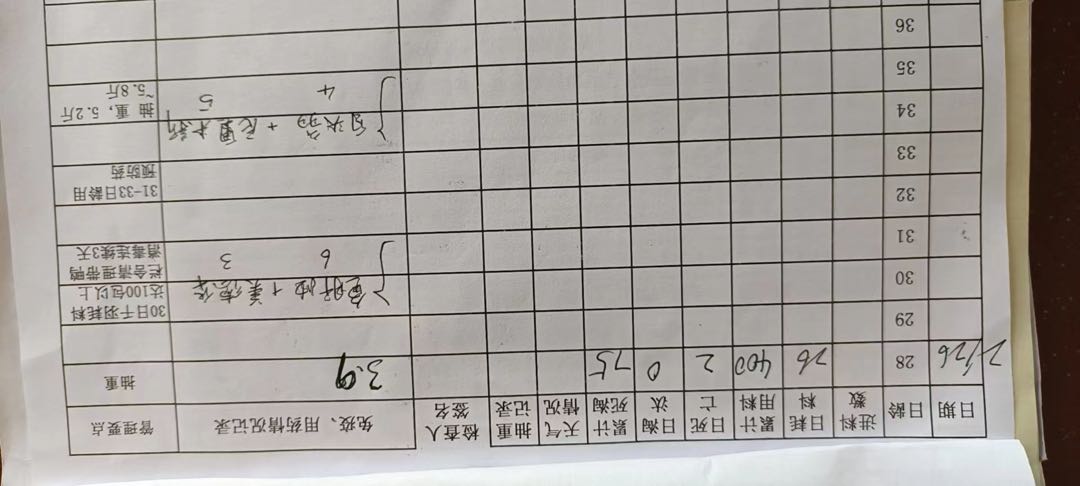 日期 日龄 进料数 日耗料 累计用料 日死亡 日淘汰 累计死淘 天气情况 抽重记录 检查人签名 免疫、用药情况记录 管理要点
2/26 28 26 400 2 0 75 3.9 抽重
29
30 30日千羽耗料达100包以上
31 栏舍清理带鸭消毒连续3天
6 3
32
33 31-33日龄用预防药
34 抽重，5.2斤~5.8斤
4 5
35
36